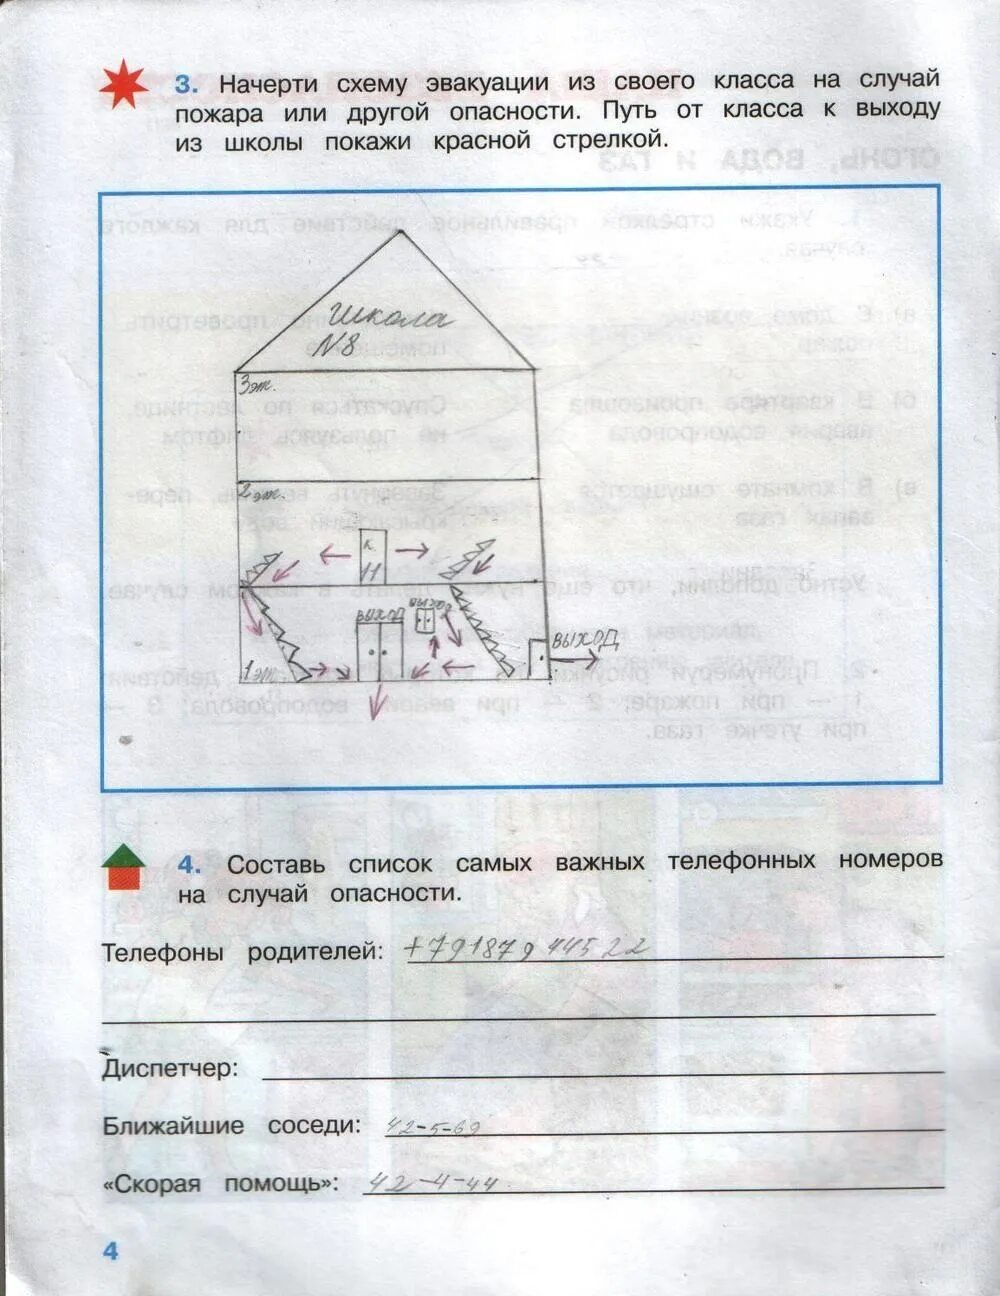 3. Начерти схему эвакуации из своего класса на случай
пожара или другой опасности. Путь от класса к выходу
из школы покажи красной стрелкой.
Школа
N8
3эт.
2эт.
к
11
ВЫХОД
ВЫХОД
ВЫХОД
1эт.
4. Составь список самых важных телефонных номеров
на случай опасности.
Телефоны родителей: +79187944522
Диспетчер:
Ближайшие соседи: 42-5-69
«Скорая помощь»: 42-4-44
4